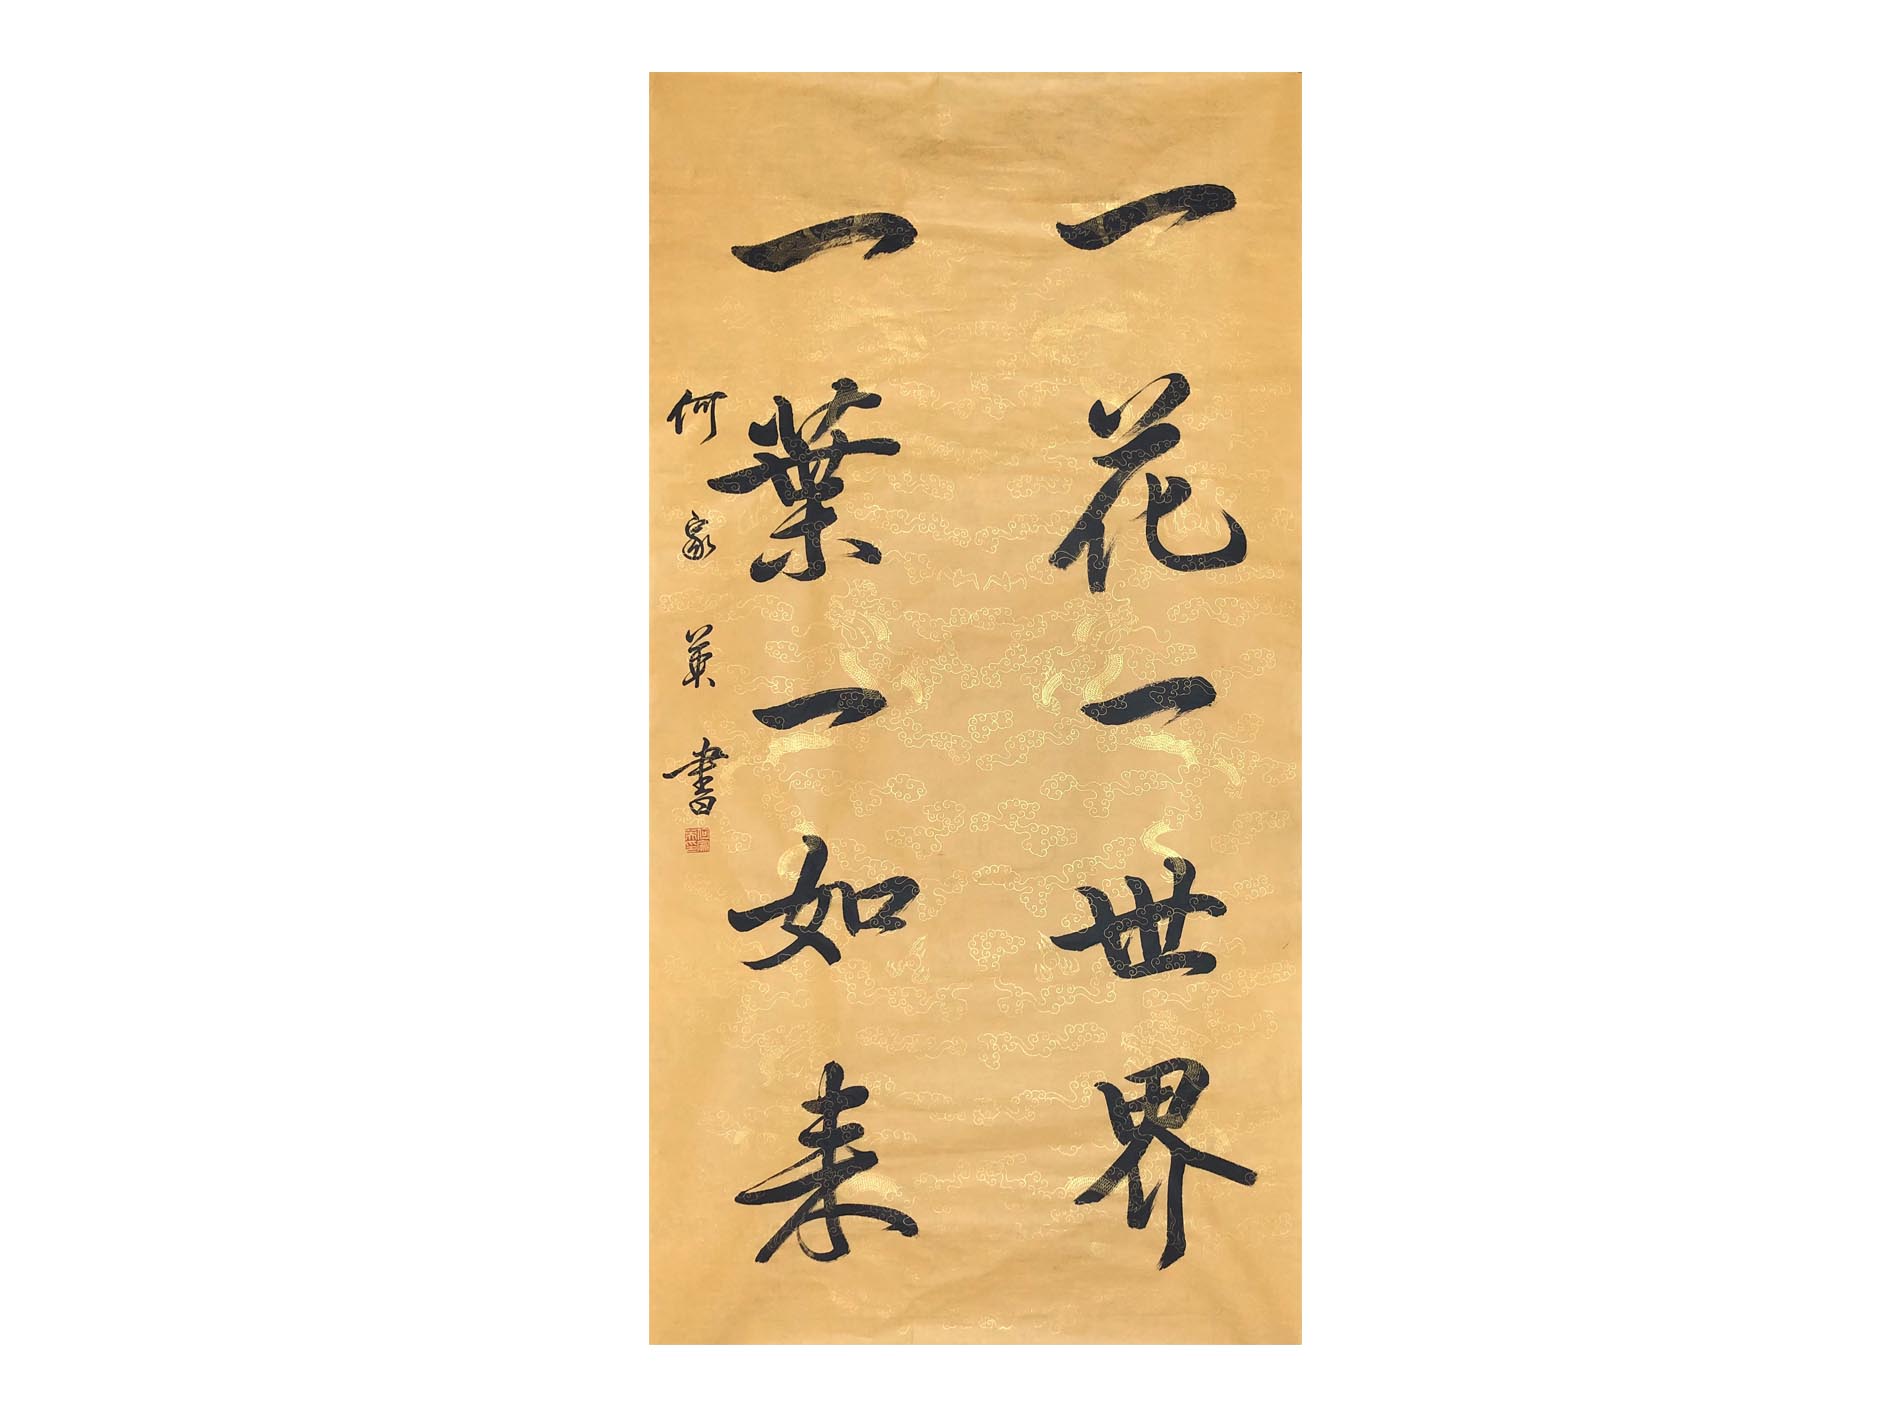 一花一世界
一葉一如来
何家英書